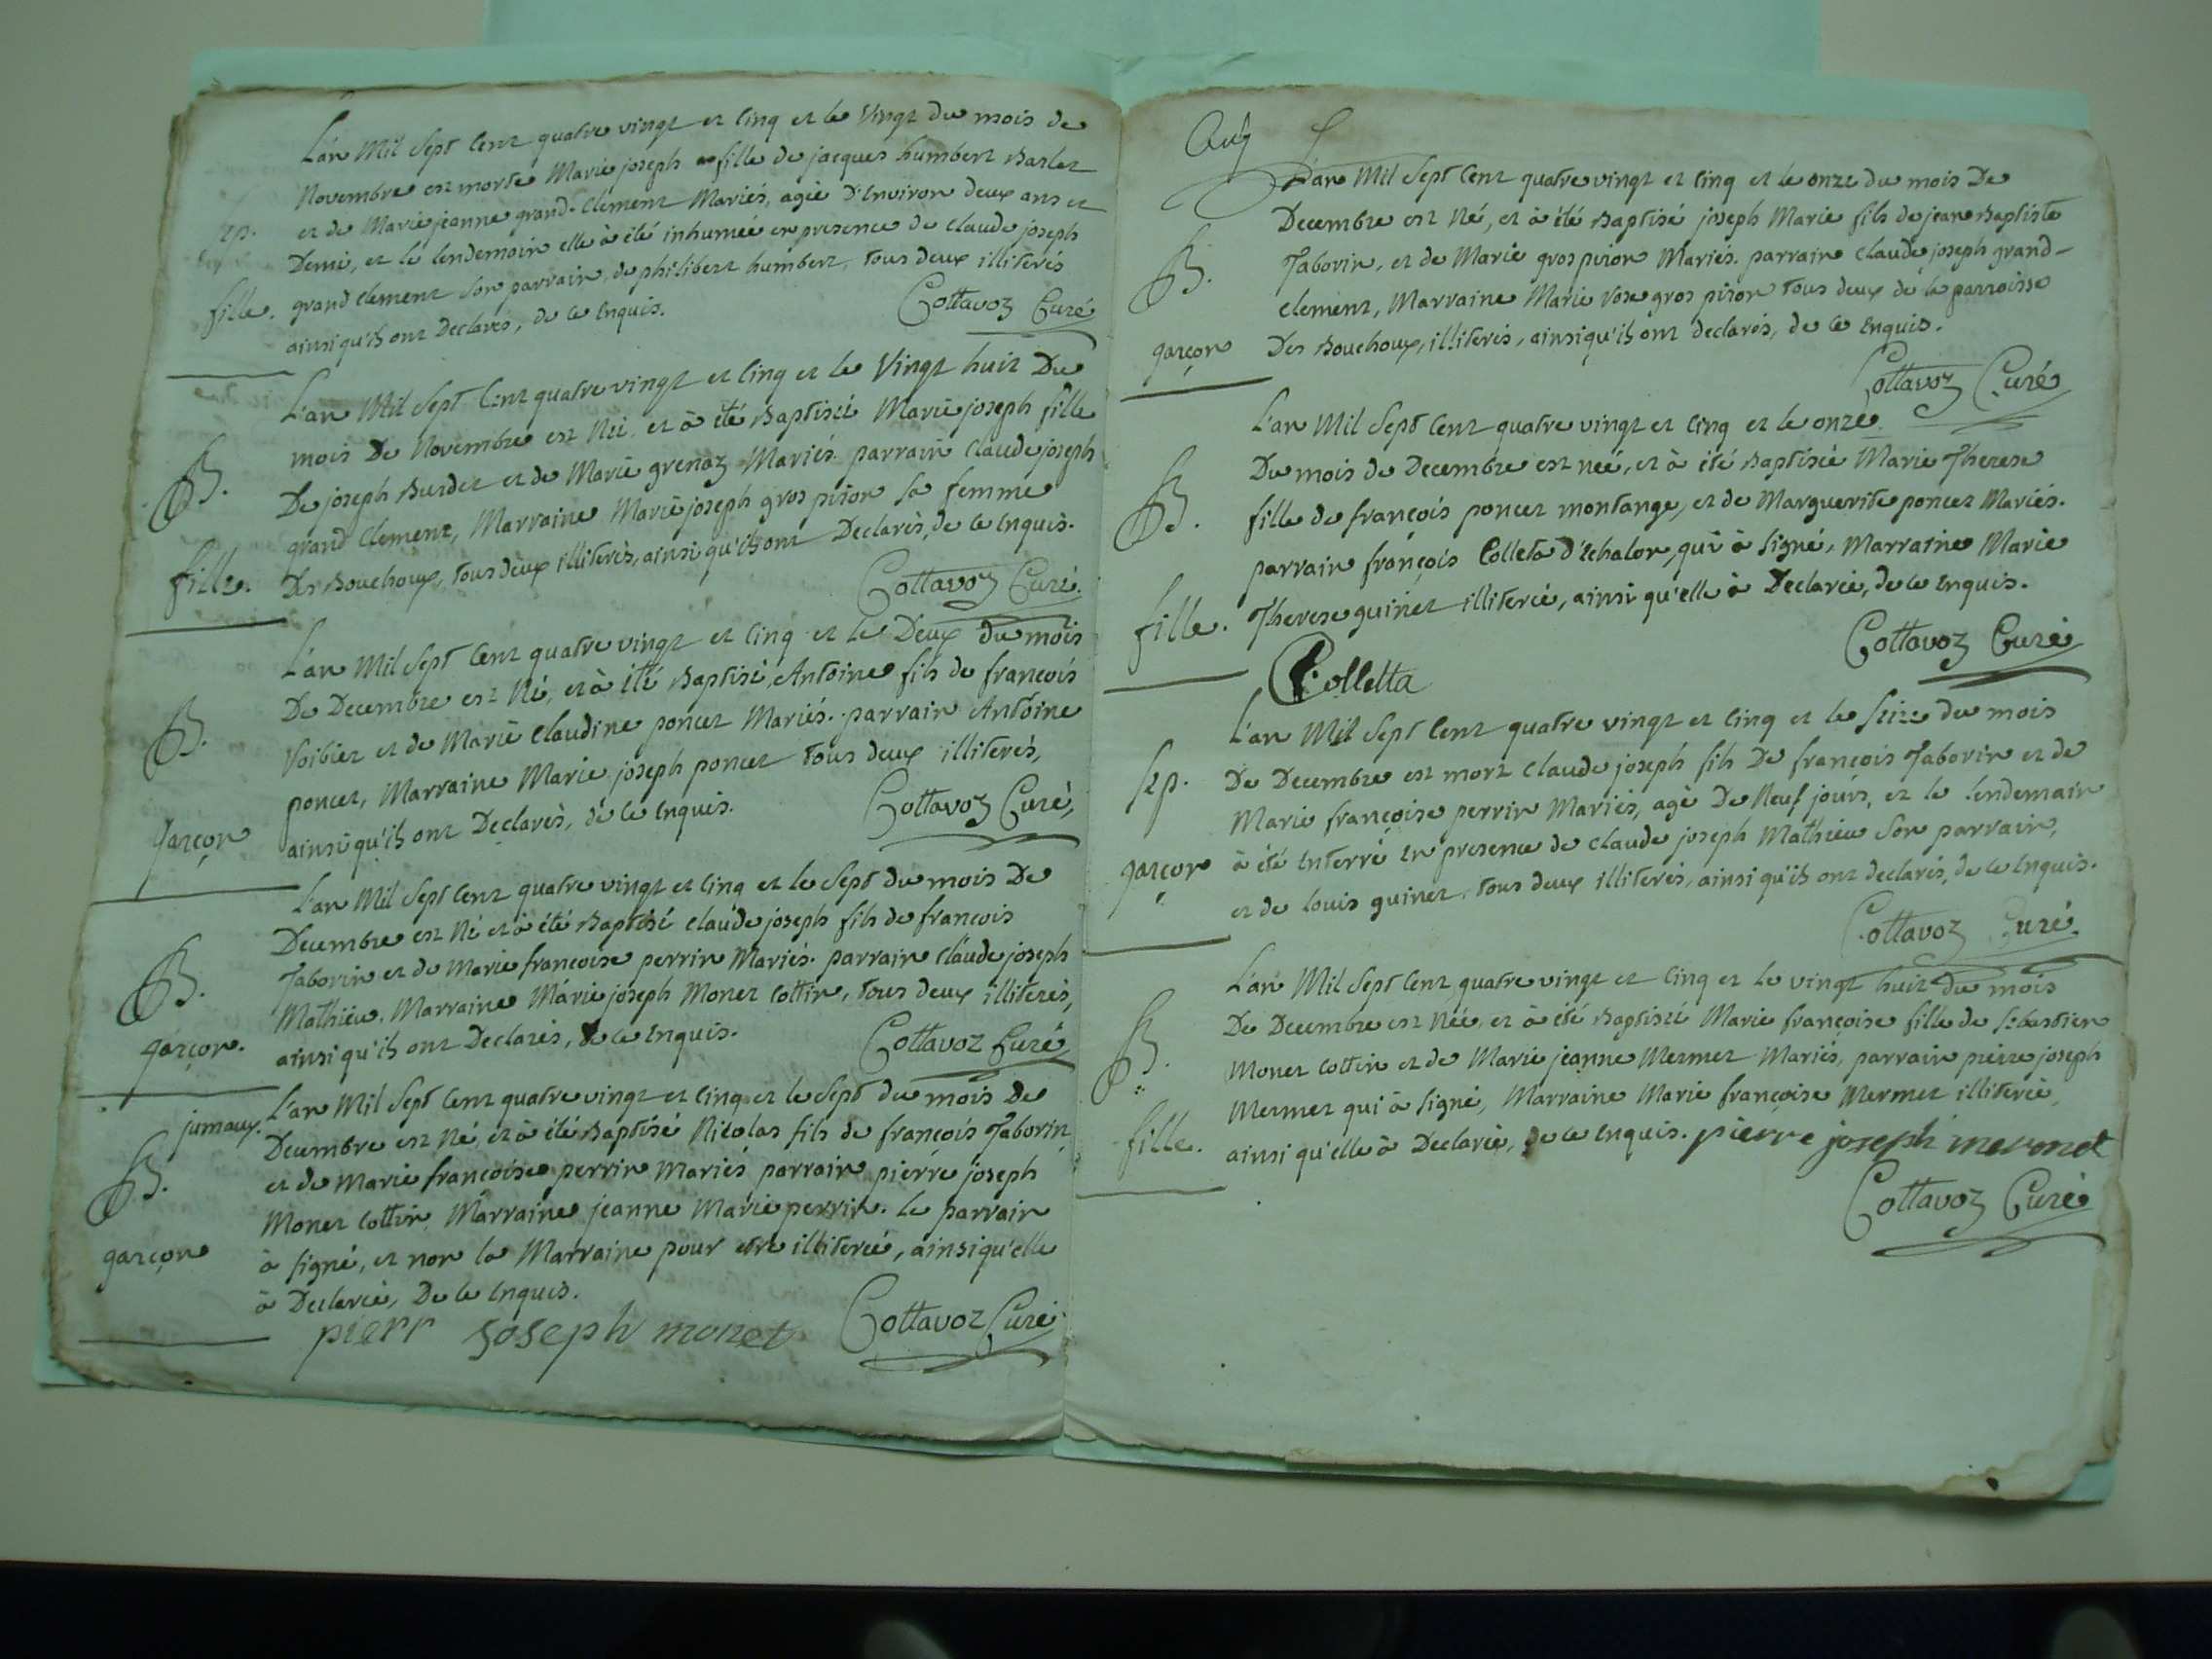 L'an Mil Sept Cent quatre vingt et Cinq et le Vingt du mois de
Novembre est morte Marie joseph fille de jacques humbert Barlet
sep.
et de Marie jeanne grand-Clement Mariés, agée d'Environ deux ans et
Demi, et le lendemain elle à été inhumée en presence de claude joseph
fille.
grand Clement Son parrain, de philibert humbert, tous deux illiterés
ainsi qu'ils ont Declarés, de ce Enquis.
Cottavoz Curé
L'an Mil Sept Cent quatre vingt et Cinq et le Vingt huit Du
mois De Novembre est Née, et à été Baptisée Marie joseph fille
B.
De joseph Burdet et de Marie grenaz Mariés. parrain Claude joseph
grand Clement, Marraine Marie joseph gros piron Sa femme
fille.
Des Bouchoux, tous deux illiterés, ainsi qu'ils ont Declarés, de ce Enquis.
Cottavoz Curé.
L'an Mil Sept Cent quatre vingt et Cinq et le Deux du mois
De Decembre est Né, et à été Baptisé, Antoine fils de francois
B.
Voibier et de Marie Claudine poncet Mariés. parrain Antoine
poncet, Marraine Marie joseph poncet tous deux illiterés,
garçon
ainsi qu'ils ont Declarés, de ce Enquis.
Cottavoz Curé,
L'an Mil Sept Cent quatre vingt et Cinq et le Sept du mois De
Decembre est Né et à été Baptisé claude joseph fils de francois
B.
Taborin et de Marie francoise perrin Mariés. parrain claude joseph
Mathieu. Marraine Marie joseph Monet Cottin, tous deux illiterés,
garçon.
ainsi qu'ils ont Declarés, de ce Enquis.
Cottavoz Curé
jumaux.
L'an Mil Sept Cent quatre vingt et Cinq et le Sept du mois De
Decembre est Né, et à été Baptisé Nicolas fils de françois Taborin
B.
et de Marie francoise perrin mariés parrain pierre joseph
Monet Cottin, Marraine jeanne Marie perrin. Le parrain
garçon
à Signé, et non la Marraine pour etre illiterée, ainsi qu'elle
à Declarée, De ce Enquis.
pierr joseph monet
Cottavoz Curé
L'an Mil Sept Cent quatre vingt et Cinq et le onze du mois De
Decembre est Né, et à été Baptisé joseph Marie fils de jean Baptiste
B.
Taborin, et de Marie gros piron Mariés. parrain Claude joseph grand-
Clement, Marraine Marie Rose gros piron tous deux de la parroisse
garçon
Des Bouchoux, illiterés, ainsi qu'ils ont declarés, de ce Enquis.
Cottavoz Curé
L'an Mil Sept Cent quatre vingt et Cinq et le onze
Du mois de Decembre est née, et à été Baptisée Marie Therese
B.
fille de françois poncet montange, et de Marguerite poncet Mariés.
parrain françois Colleta d'Echalon, qui à Signé, Marraine Marie
fille.
Therese guinet illiterée, ainsi qu'elle à Declarée, de ce Enquis.
Cottavoz Curé
Colletta
L'an Mil Sept Cent quatre vingt et Cinq et le Seize du mois
sep.
De Decembre est mort Claude joseph fils De françois Taborin et de
Marie françoise perrin Mariés, agé De Neuf jours, et le lendemain
garçon
à été Enterré En presence de claude joseph Mathieu Son parrain,
et de Louis guinet, tous deux illiterés, ainsi qu'ils ont declarés, de ce Enquis.
Cottavoz Curé.
L'an Mil Sept Cent quatre vingt et Cinq et le vingt huit du mois
De Decembre est Née, et à été Baptisée Marie françoise fille de Sebastien
B.
Monet Cottin et de Marie jeanne Mermet Mariés, parrain pierre joseph
Mermet qui à Signé, Marraine Marie françoise Mermet illiterée,
fille.
ainsi qu'elle à Declarée, de ce Enquis. pierre joseph mermet
Cottavoz Curé